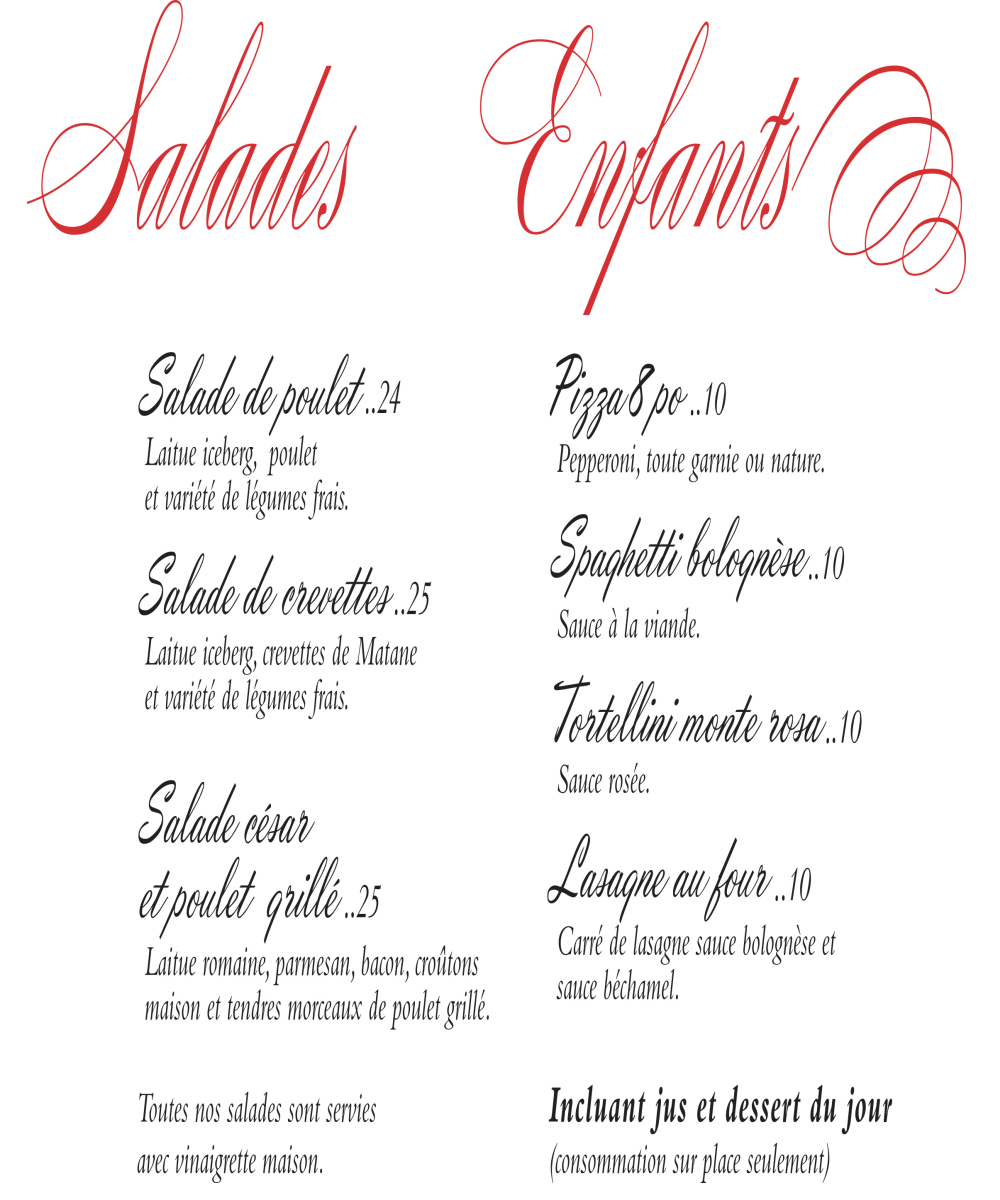 Salades
Salade de poulet..24
Laitue iceberg, poulet
et variété de légumes frais.
Salade de crevettes..25
Laitue iceberg, crevettes de Matane
et variété de légumes frais.
Salade césar
et poulet grillé..25
Laitue romaine, parmesan, bacon, croûtons
maison et tendres morceaux de poulet grillé.
Toutes nos salades sont servies
avec vinaigrette maison.
Enfants
Pizza 8 po..10
Pepperoni, toute garnie ou nature.
Spaghetti bolognèse..10
Sauce à la viande.
Tortellini monte rosa..10
Sauce rosée.
Lasagne au four..10
Carré de lasagne sauce bolognèse et
sauce béchamel.
Incluant jus et dessert du jour
(consommation sur place seulement)